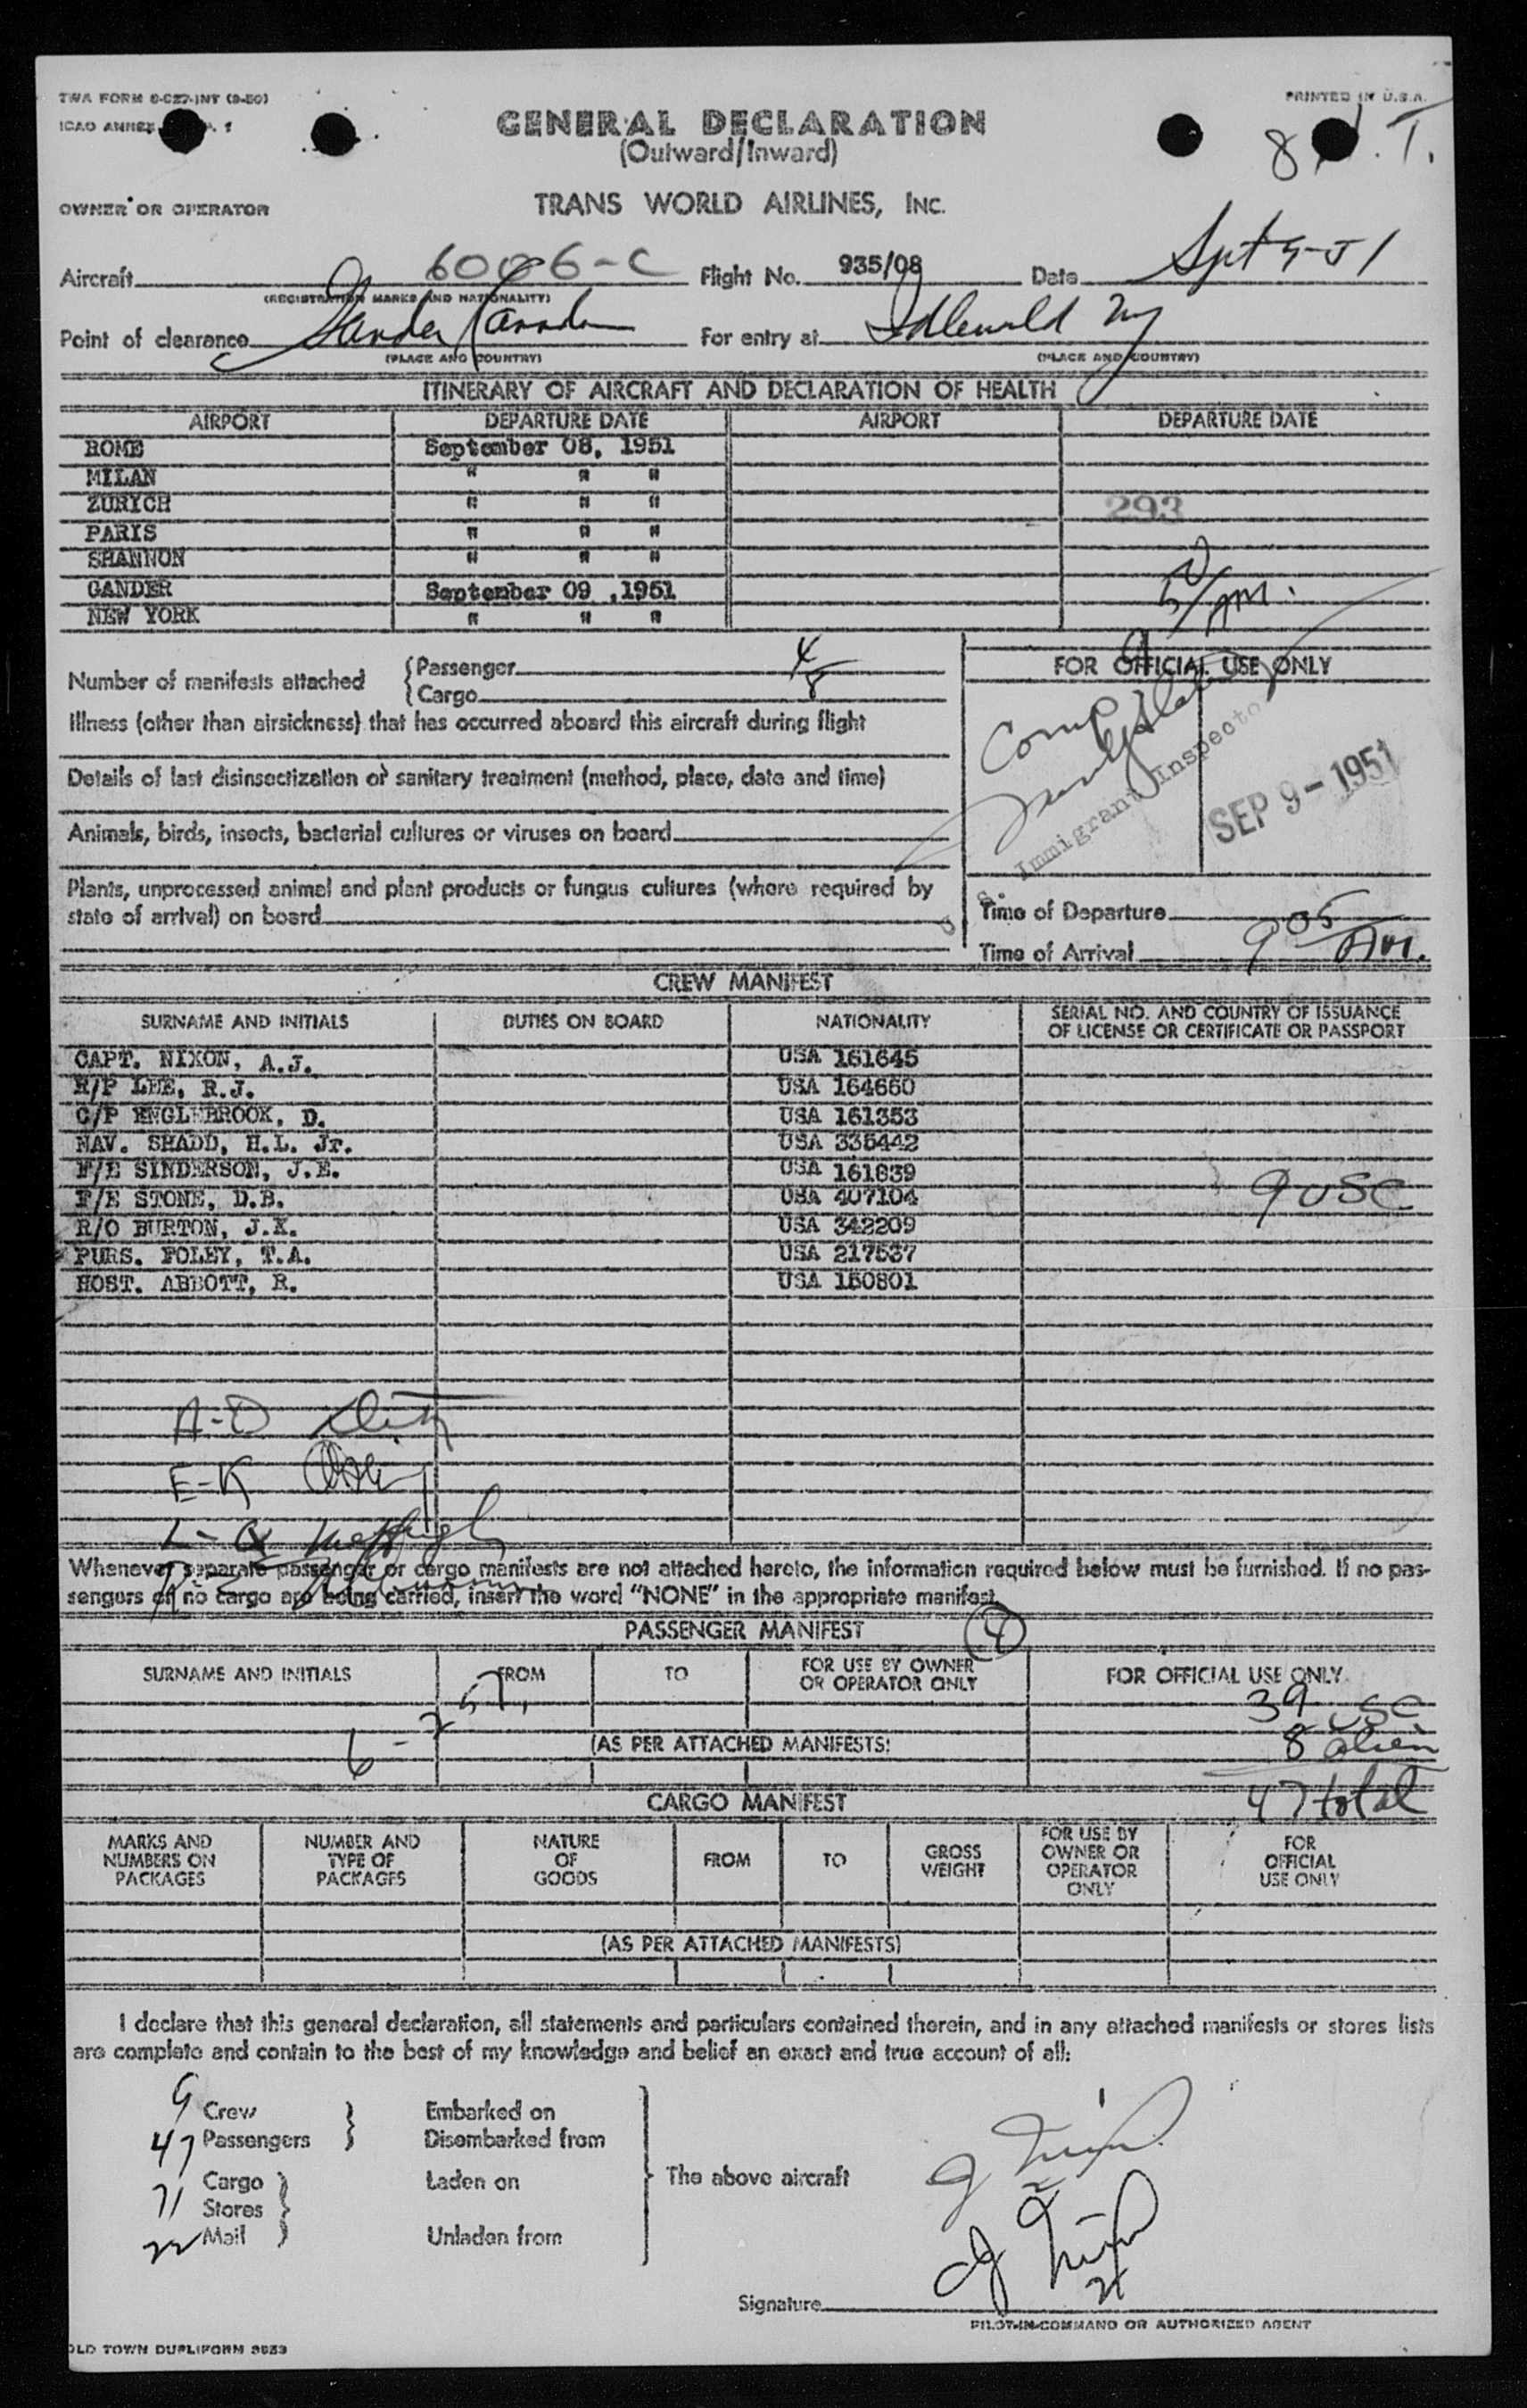 TWA FORM 8-C27-INT (9-50)
PRINTED IN U.S.A.
ICAO ANNEX
GENERAL DECLARATION
(Outward/Inward)
OWNER OR OPERATOR
TRANS WORLD AIRLINES, INC.
Aircraft 6006-C Flight No. 935/08 Date Sept 9-51
(REGISTRATION MARKS AND NATIONALITY)
Point of clearance Gander Canada For entry at Idlewild NY
(PLACE AND COUNTRY) (PLACE AND COUNTRY)
ITINERARY OF AIRCRAFT AND DECLARATION OF HEALTH
AIRPORT DEPARTURE DATE AIRPORT DEPARTURE DATE
ROME September 08, 1951
MILAN " " "
ZURICH " " " 293
PARIS " " "
SHANNON " " "
GANDER September 09 ,1951
NEW YORK " " "
Number of manifests attached { Passenger 4
{ Cargo 8
FOR OFFICIAL USE ONLY
Illness (other than airsickness) that has occurred aboard this aircraft during flight
Comp
Immigrant Inspector
SEP 9 - 1951
Details of last disinsectization or sanitary treatment (method, place, date and time)
Animals, birds, insects, bacterial cultures or viruses on board
Plants, unprocessed animal and plant products or fungus cultures (where required by
state of arrival) on board
Time of Departure
Time of Arrival 9 05 AM.
CREW MANIFEST
SURNAME AND INITIALS DUTIES ON BOARD NATIONALITY SERIAL NO. AND COUNTRY OF ISSUANCE
OF LICENSE OR CERTIFICATE OR PASSPORT
CAPT. NIXON, A.J. USA 161645
R/P LEE, R.J. USA 164660
C/P ENGLEBROOK, D. USA 161353
NAV. SHADD, H.L. Jr. USA 335442
F/E SINDERSON, J.E. USA 161839
F/E STONE, D.B. USA 407104 9 USC
R/O BURTON, J.K. USA 342209
PURS. FOLEY, T.A. USA 217537
HOST. ABBOTT, R. USA 150801
A-D
E-K
L-Q
Whenever separate passenger or cargo manifests are not attached hereto, the information required below must be furnished. If no pas-
sengers or no cargo are being carried, insert the word "NONE" in the appropriate manifest.
PASSENGER MANIFEST 4
SURNAME AND INITIALS FROM TO FOR USE BY OWNER
OR OPERATOR ONLY FOR OFFICIAL USE ONLY
39 USC
(AS PER ATTACHED MANIFESTS) 8 alien
CARGO MANIFEST 47 total
MARKS AND
NUMBERS ON
PACKAGES NUMBER AND
TYPE OF
PACKAGES NATURE
OF
GOODS FROM TO GROSS
WEIGHT FOR USE BY
OWNER OR
OPERATOR
ONLY FOR
OFFICIAL
USE ONLY
(AS PER ATTACHED MANIFESTS)
I declare that this general declaration, all statements and particulars contained therein, and in any attached manifests or stores lists
are complete and contain to the best of my knowledge and belief an exact and true account of all:
9 Crew } Embarked on
47 Passengers } Disembarked from
71 Cargo } Laden on } The above aircraft
Stores }
22 Mail } Unladen from
Signature
PILOT-IN-COMMAND OR AUTHORIZED AGENT
OLD TOWN DUPLIFORM